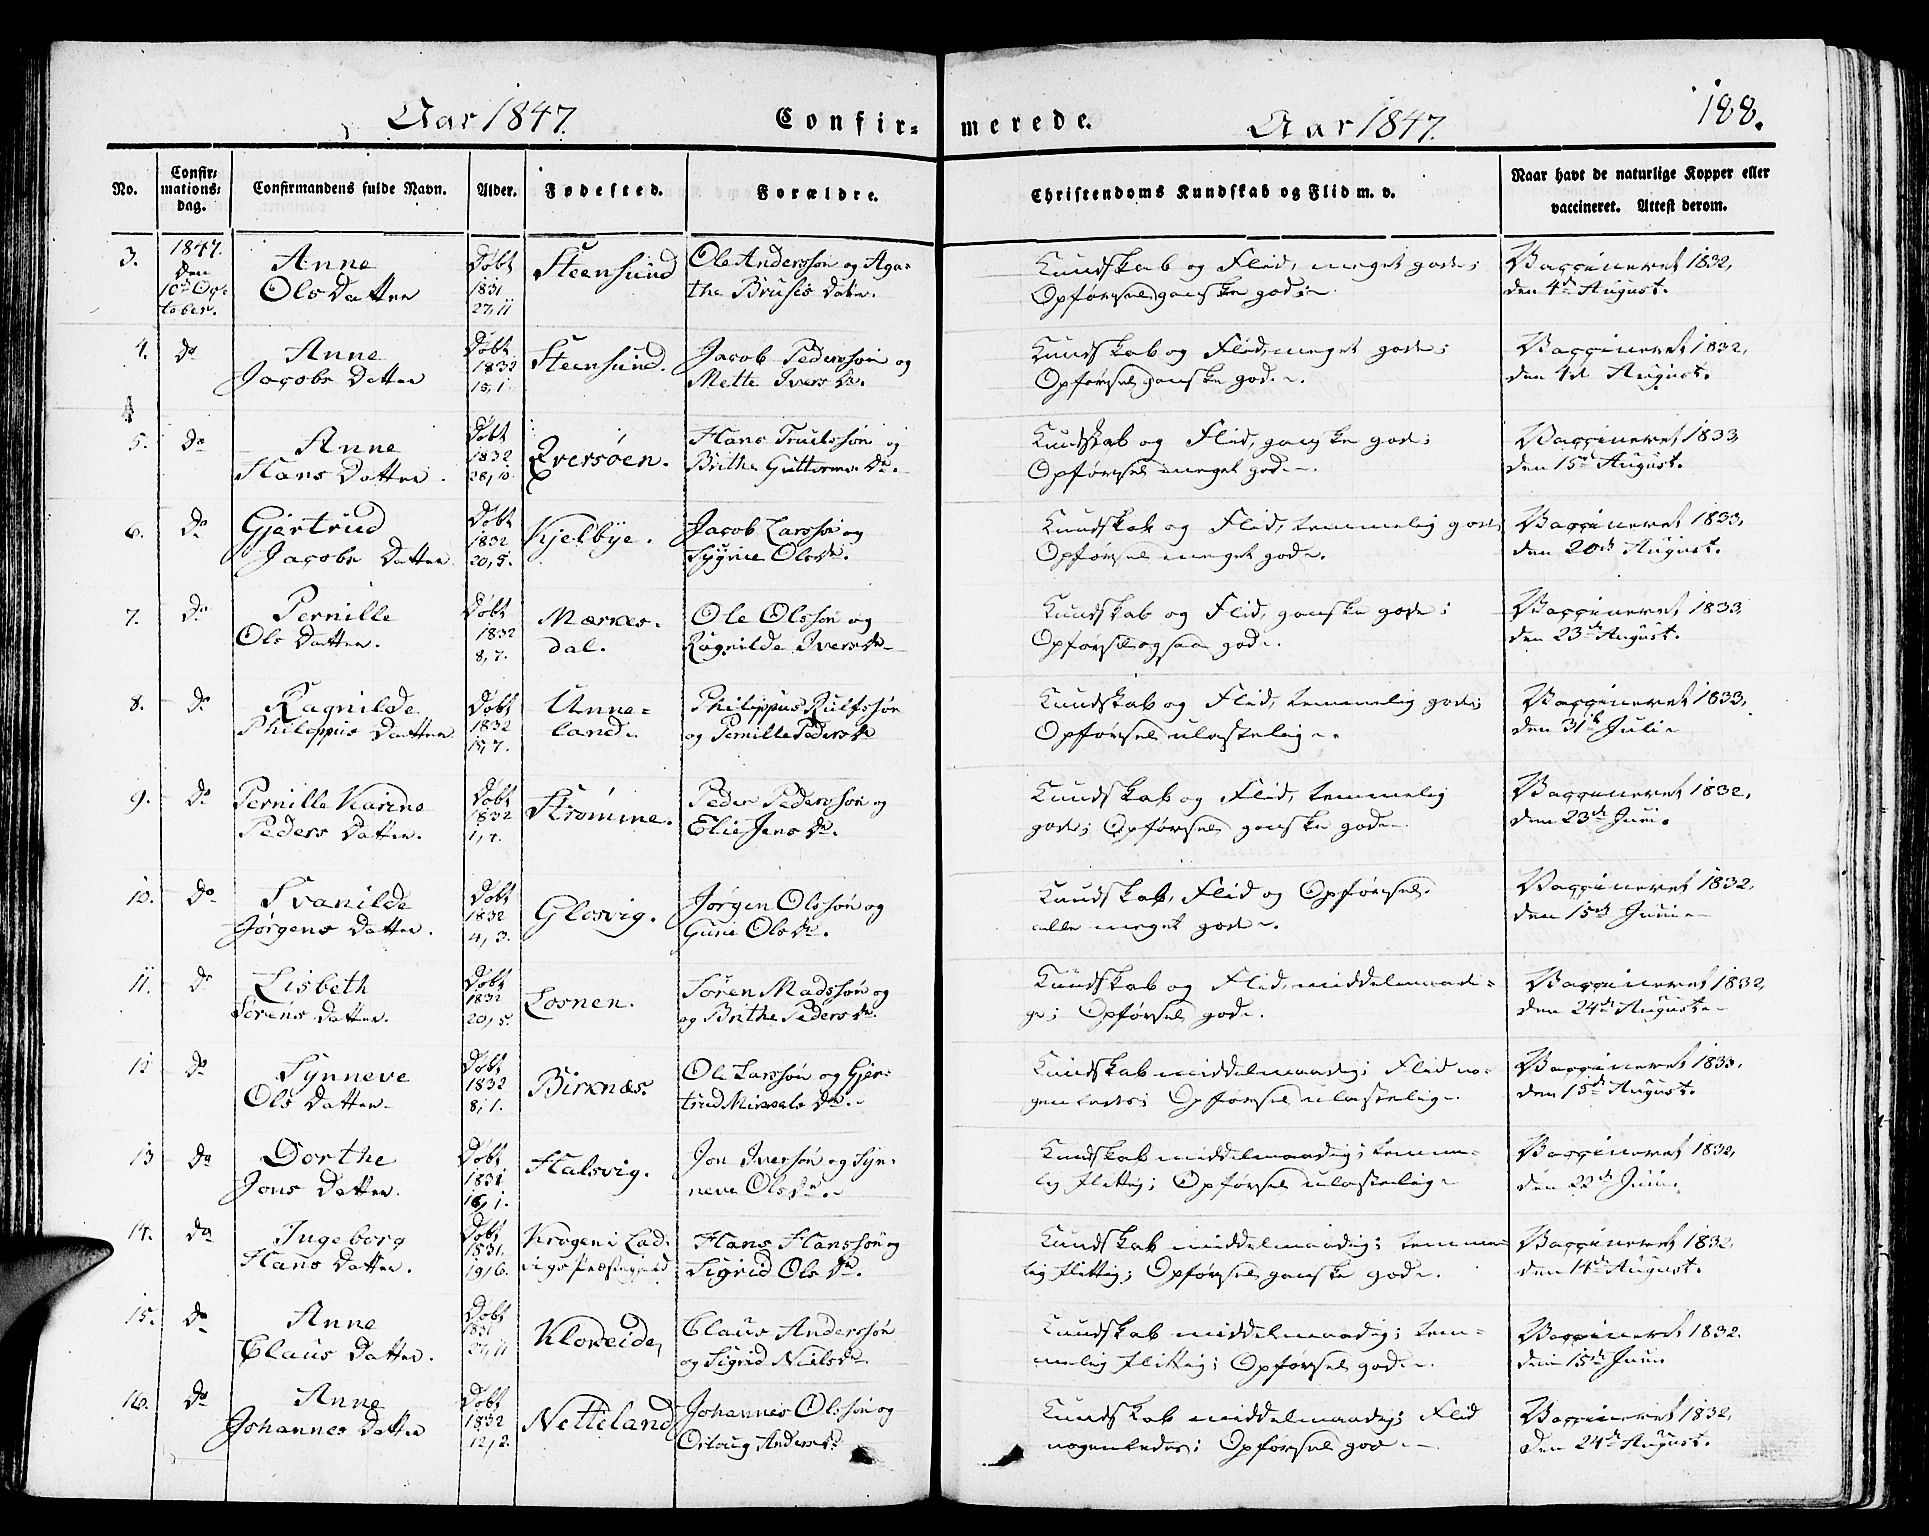 Aar 1847. Confir= merede. Aar 1847. 188.
No. Confir= mations= dag. Confirmandens fulde Navn. Alder. Fødested. Forældre. Christendoms Kundskab og Flid m. v. Naar havt de naturlige Kopper eller vaccineret. Attest derom.
3. 1847. Anne Døbt Steensund Ole Anderssøn og Aga= Kundskab og Flid, meget gode; Vaccineret 1832,
den 10de Oc= Ols Datter 1831 the Bruses Datter. Opførsel ganske god.
tober. 27,11 den 4de August.
4. do Anne Døbt Steensund. Jacob Pederssøn og Kundskab og Flid, meget gode; Vaccineret 1832,
Jacobs Datter 1832 Mette Ivers Dr. Opførsel ganske god. den 4de August.
15,1.
5. do Anne Døbt Eversøen. Hans Truelssøn og Kundskab og Flid, ganske gode; Vaccineret 1833,
Hans Datter. 1832 Brithe Guttorms Dr. Opførsel meget god. den 15de August.
28,10.
6. do Gjertrud Døbt Kjelbye. Jacob Larssøn og Kundskab og Flid, temmelig gode; Vaccineret 1833,
Jacobs Datter 1832 Sygnie Ols Dr. Opførsel meget god. den 20de August.
20,5.
7. do Pernille Døbt Mærkes= Ole Olssøn og Kundskab og Flid, ganske gode; Vaccineret 1833,
Ols Datter. 1832 dal. Ragnilde Ivers Dr Opførsel ogsaa god. den 23de August.
8,7.
8. do Ragnilde Døbt Unne= Philippus Rulfssøn Kundskab og Flid, temmelig gode; Vaccineret 1833,
Philippus Datter 1832 land. og Pernille Peders Dr Opførsel ulastelig. den 31te Juli
15,7.
9. do Pernille Karine Døbt Strømme. Peder Pederssøn og Kundskab og Flid, temmelig Vaccineret 1832,
Peders Datter. 1832 Elie Jens Dr. gode; Opførsel ganske god. den 23de Juni.
1,4.
10. do Svanilde Døbt Glosvig. Jørgen Olssøn og Kundskab, Flid og Opførsel Vaccineret 1832,
Jørgens Datter. 1832 Gurie Ols Dr. alle meget gode. den 15de Juni
4,3.
11. do Lisbeth Døbt Losnen. Søren Madssøn og Kundskab og Flid, middelmaadi= Vaccineret 1832,
Sørens Datter. 1832 og Brithe Peders Dr. ge; Opførsel god. den 24de August
20,5.
12 do Synneve Døbt Birknæs. Ole Larssøn og Gjer= Kundskab middelmaadig; Flid no= Vaccineret 1833,
Ols Datter 1832 trud Mikkels Dr. genledes; Opførsel ulastelig. den 15de August.
8,1.
13 do Dorthe Døbt Halsvig. Jon Iverssøn og Syn= Kundskab middelmaadig; temme= Vaccineret 1832,
Jons Datter. 1831 neve Ols Dr. lig flittig; Opførsel ulastelig den 23de Juni.
16,1.
14. do Ingeborg Døbt Krogen i Lad= Hans Hanssøn og Kundskab middelmaadig; temme= Vaccineret 1832,
Hans Datter. 1831. vigs Præstegjeld Sigrid Ols Dr. lig flittig; Opførsel ganske god. den 14de August.
19,6.
15. do Anne Døbt Kloveide, Claus Anderssøn Kundskab middelmaadig; tem= Vaccineret 1832.
Claus Datter. 1831 og Sigrid Niels Dr. melig flittig; Opførsel god. den 15de Juni
27,11
16. do Anne Døbt Netteland Johannes Olssøn og Kundskab middelmaadig; Flid Vaccineret 1832,
Johannes Datter 1832 Orloug Anders Dr nogenledes; Opførsel god. den 24de August.
12,2.